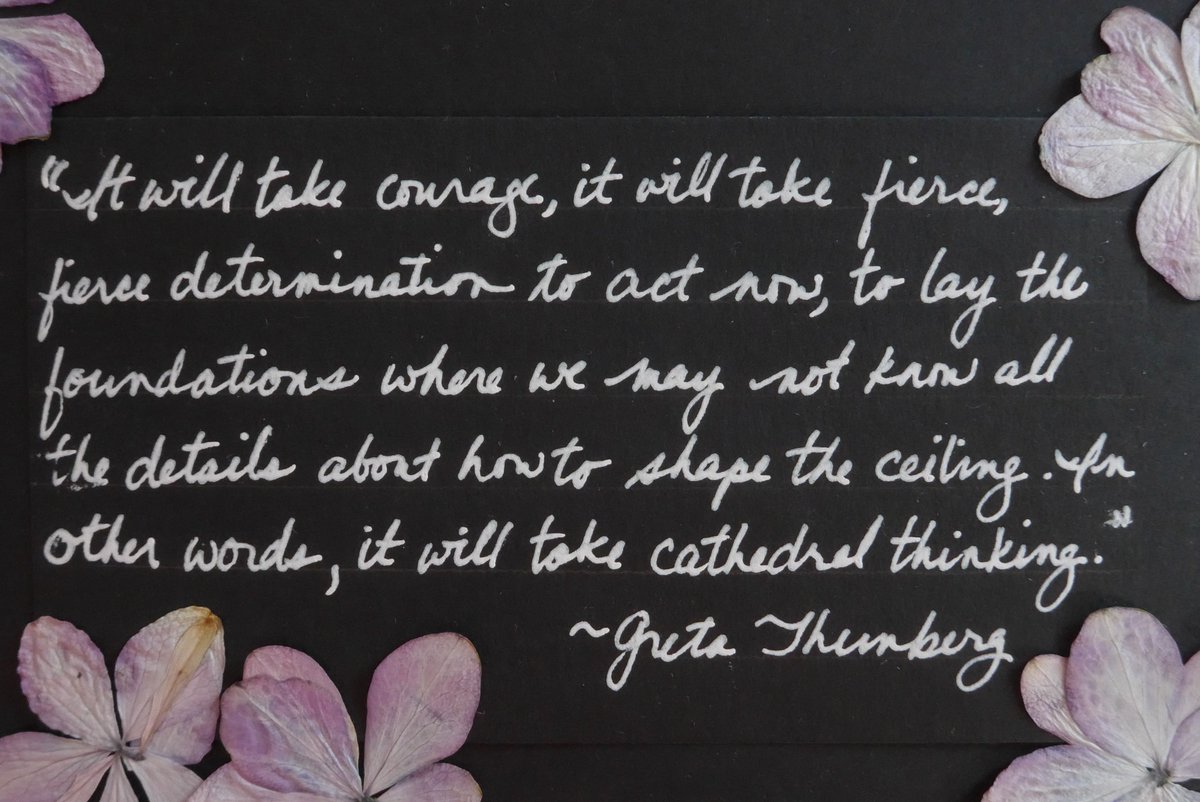 "It will take courage, it will take fierce,
fierce determination to act now, to lay the
foundations where we may not know all
the details about how to shape the ceiling. In
other words, it will take cathedral thinking."
~Greta Thunberg